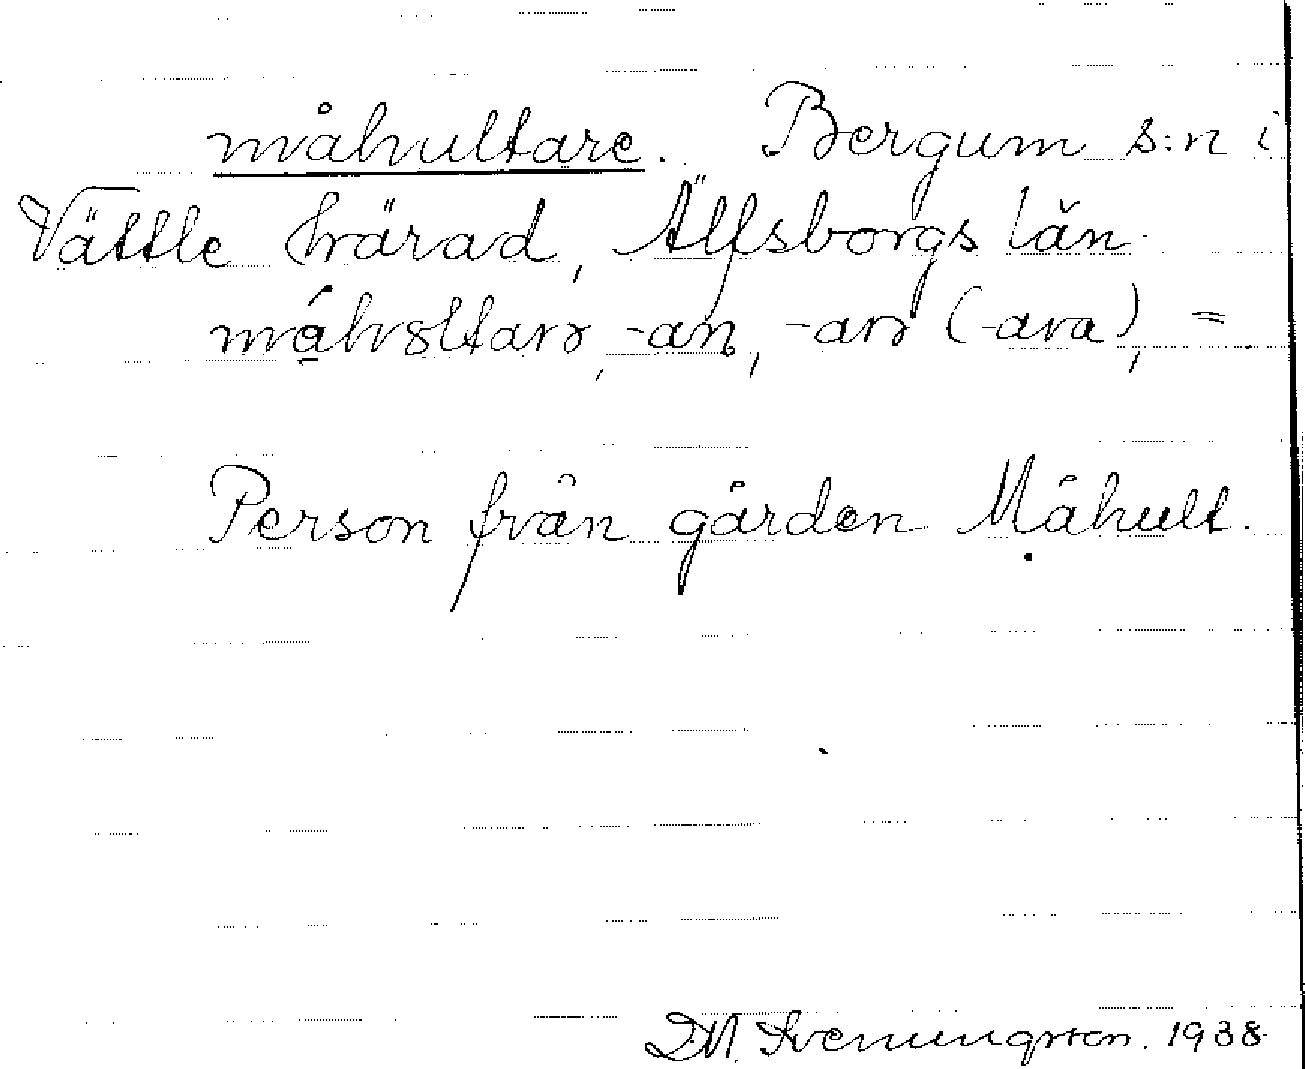 måhultare. Bergum s:n i
Vättle härad, Älfsborgs län.
-an, (-ara), =
Person från gården Måhult.
1938